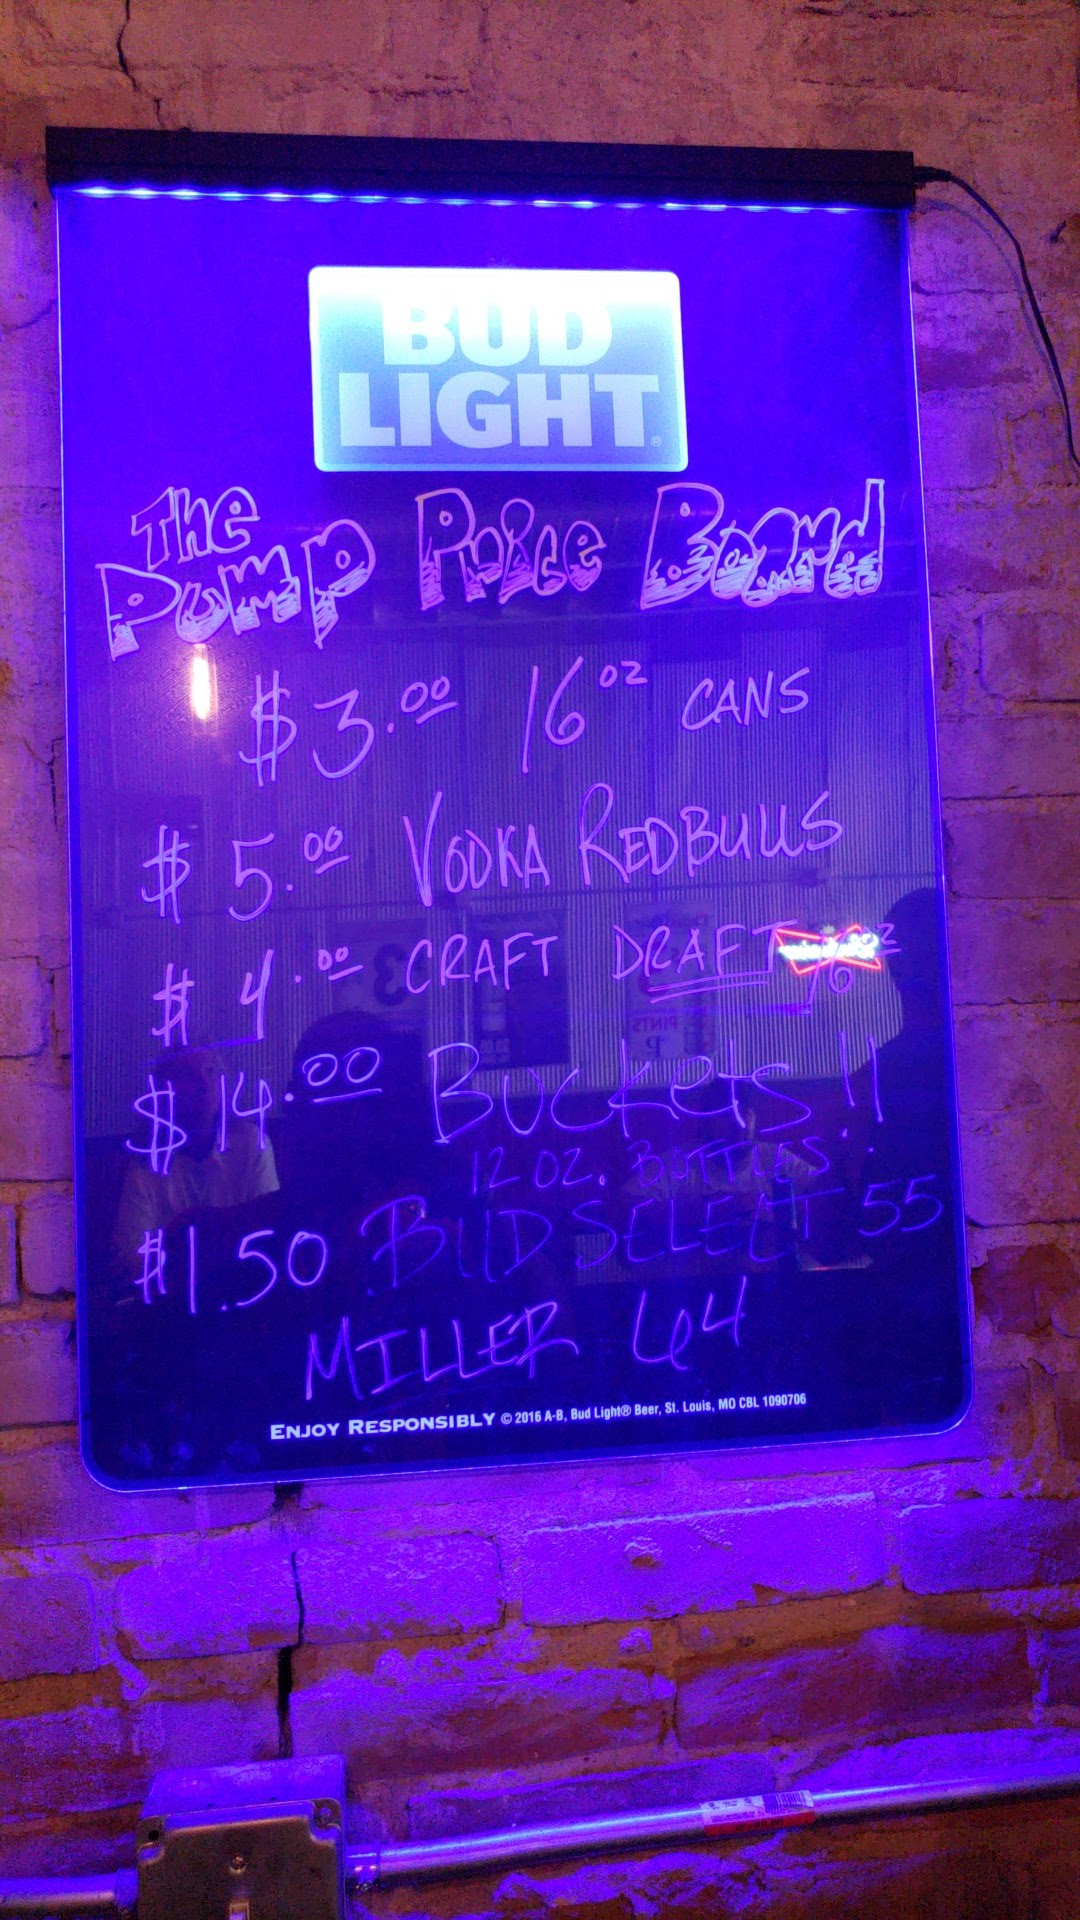 BUD
LIGHT®
The Pump Price Board
$3.00 16oz CANS
$5.00 VODKA REDBULLS
$4.00 CRAFT DRAFT 16oz
$14.00 Buckets!!
12 OZ. BOTTLES
$1.50 BUD SELECT 55
MILLER 64
ENJOY RESPONSIBLY © 2016 A-B, Bud Light® Beer, St. Louis, MO CBL 1090706